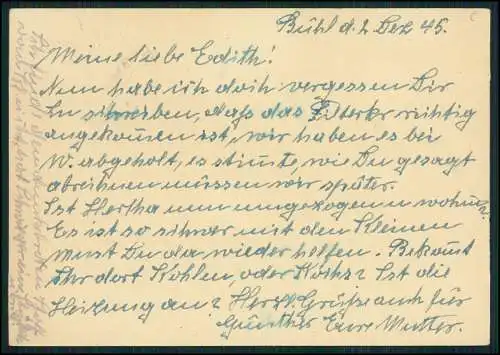 Bühl d. 2 Dez 45.
Meine liebe Edith!
Nun habe ich doch vergessen Dir
zu schreiben, daß das richtig
angekom̄en ist, wir haben es bei
W. abgeholt, es stim̄te, wie Du gesagt
abreihnen müssen wir später.
Ist Hertha nun umgezogen u wohnt?
Es ist so schwer mit den Kleinen
Must Du da wieder helfen. Bekom̄t
Ihr dort Kohlen, oder Koiks? Ist die
Heizung an? Herzl. Grüße auch für
Günther Eure Mutter.